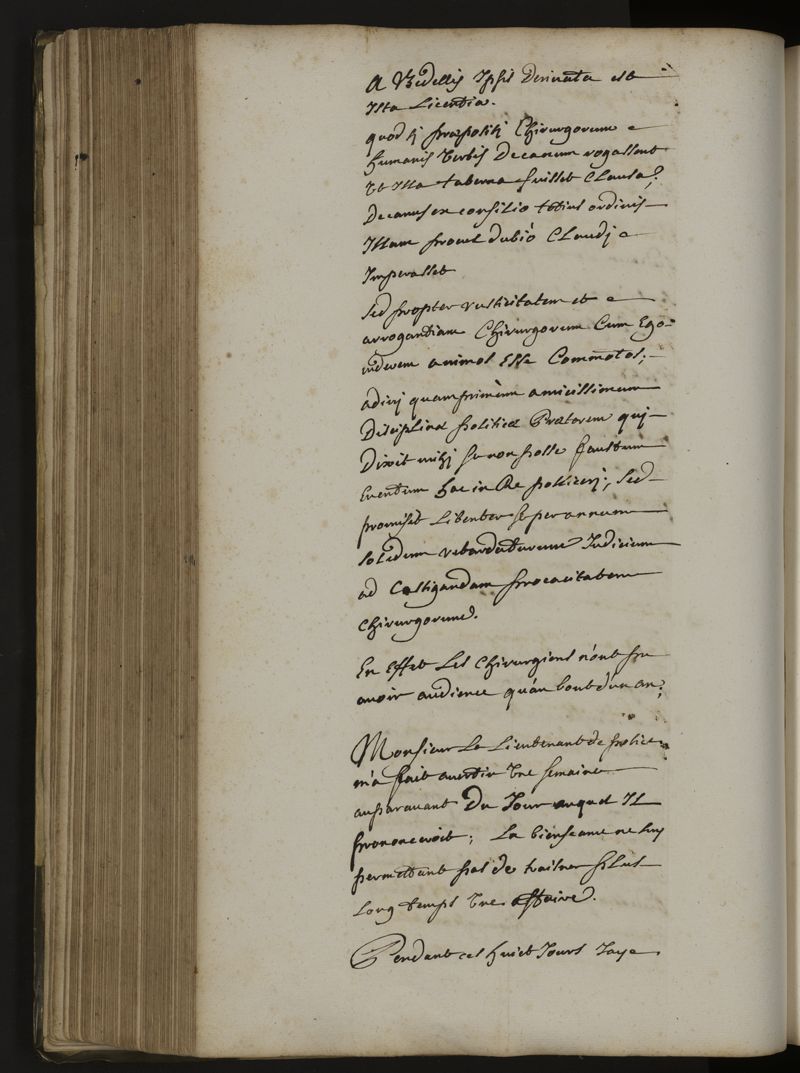 A Bidellis Ipsis Derivata est
Ista Licentia.
quod sj præpositj Chirurgorum
humanis verbis Decanum rogassent
Vt Ista taberna fuisset Clausa,
Decanus ex consilio totius ordinis
Istam procul dubió Claudj
Imperasset
sed propter rusticitatem et
arrogantiam Chirurgorum Cum Ego
viderem animos Esse Commotos;
adivj quamprimùm amicissimum
Disciplinæ politicæ Prætorem quj
Dixit mihj se non posse faustum
Eventum hac in Re pollicerj; sed
promisit Libenter se per annum
solidum retardaturum Judicium
ad Castigandam procacitatem
Chirurgorum.
En Effet Les Chirurgiens n'ont pu
avoir audience qu'au bout d'un an;
Monsieur Le Lieutenant de police
m'a fait avertir Vne semaine
auparavant Du Jour auquel IL
prononceroit; La bienseance ne luy
permettant pas de traisner plus
Long temps Vne affaire.
Pendant ces huict Jours Jaye